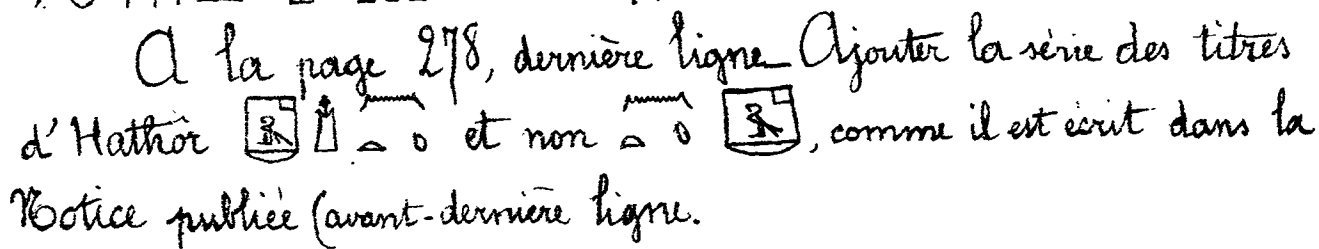 A la page 278, dernière ligne_ Ajouter la série des titres
d'Hathôr et non , comme il est écrit dans la
Notice publiée (avant-dernière ligne.